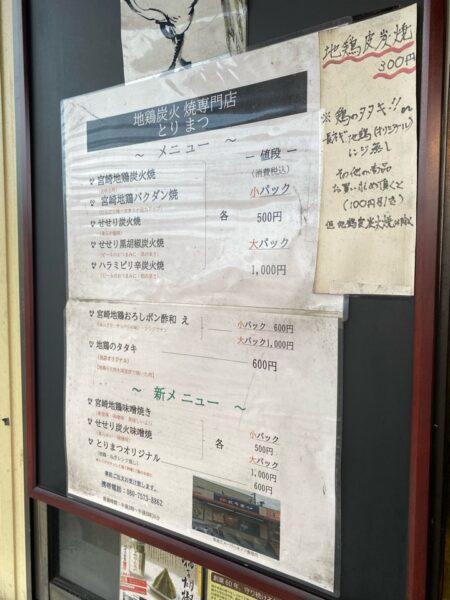 地鶏炭火焼専門店
とりまつ
～ メニュー ～
― 値段 ―
(消費税込)
宮崎地鶏炭火焼
小パック
宮崎地鶏バクダン焼
各 500円
せせり炭火焼
せせり黒胡椒炭火焼
大パック
ハラミピリ辛炭火焼
1,000円
宮崎地鶏おろしポン酢和え
小パック 600円
大パック1,000円
地鶏のタタキ
600円
～ 新メニュー ～
宮崎地鶏味噌焼き
小パック
せせり炭火味噌焼
各 500円
大パック
とりまつオリジナル
1,000円
600円
事前ご注文お受け致します。
携帯電話：080-7573-8862
地鶏皮炭焼
300円
※鶏のタタキ!! or
地鶏(オリジナル)
その他の商品
お買い求め頂くと
(100円引き)
創業60年、守り続ける